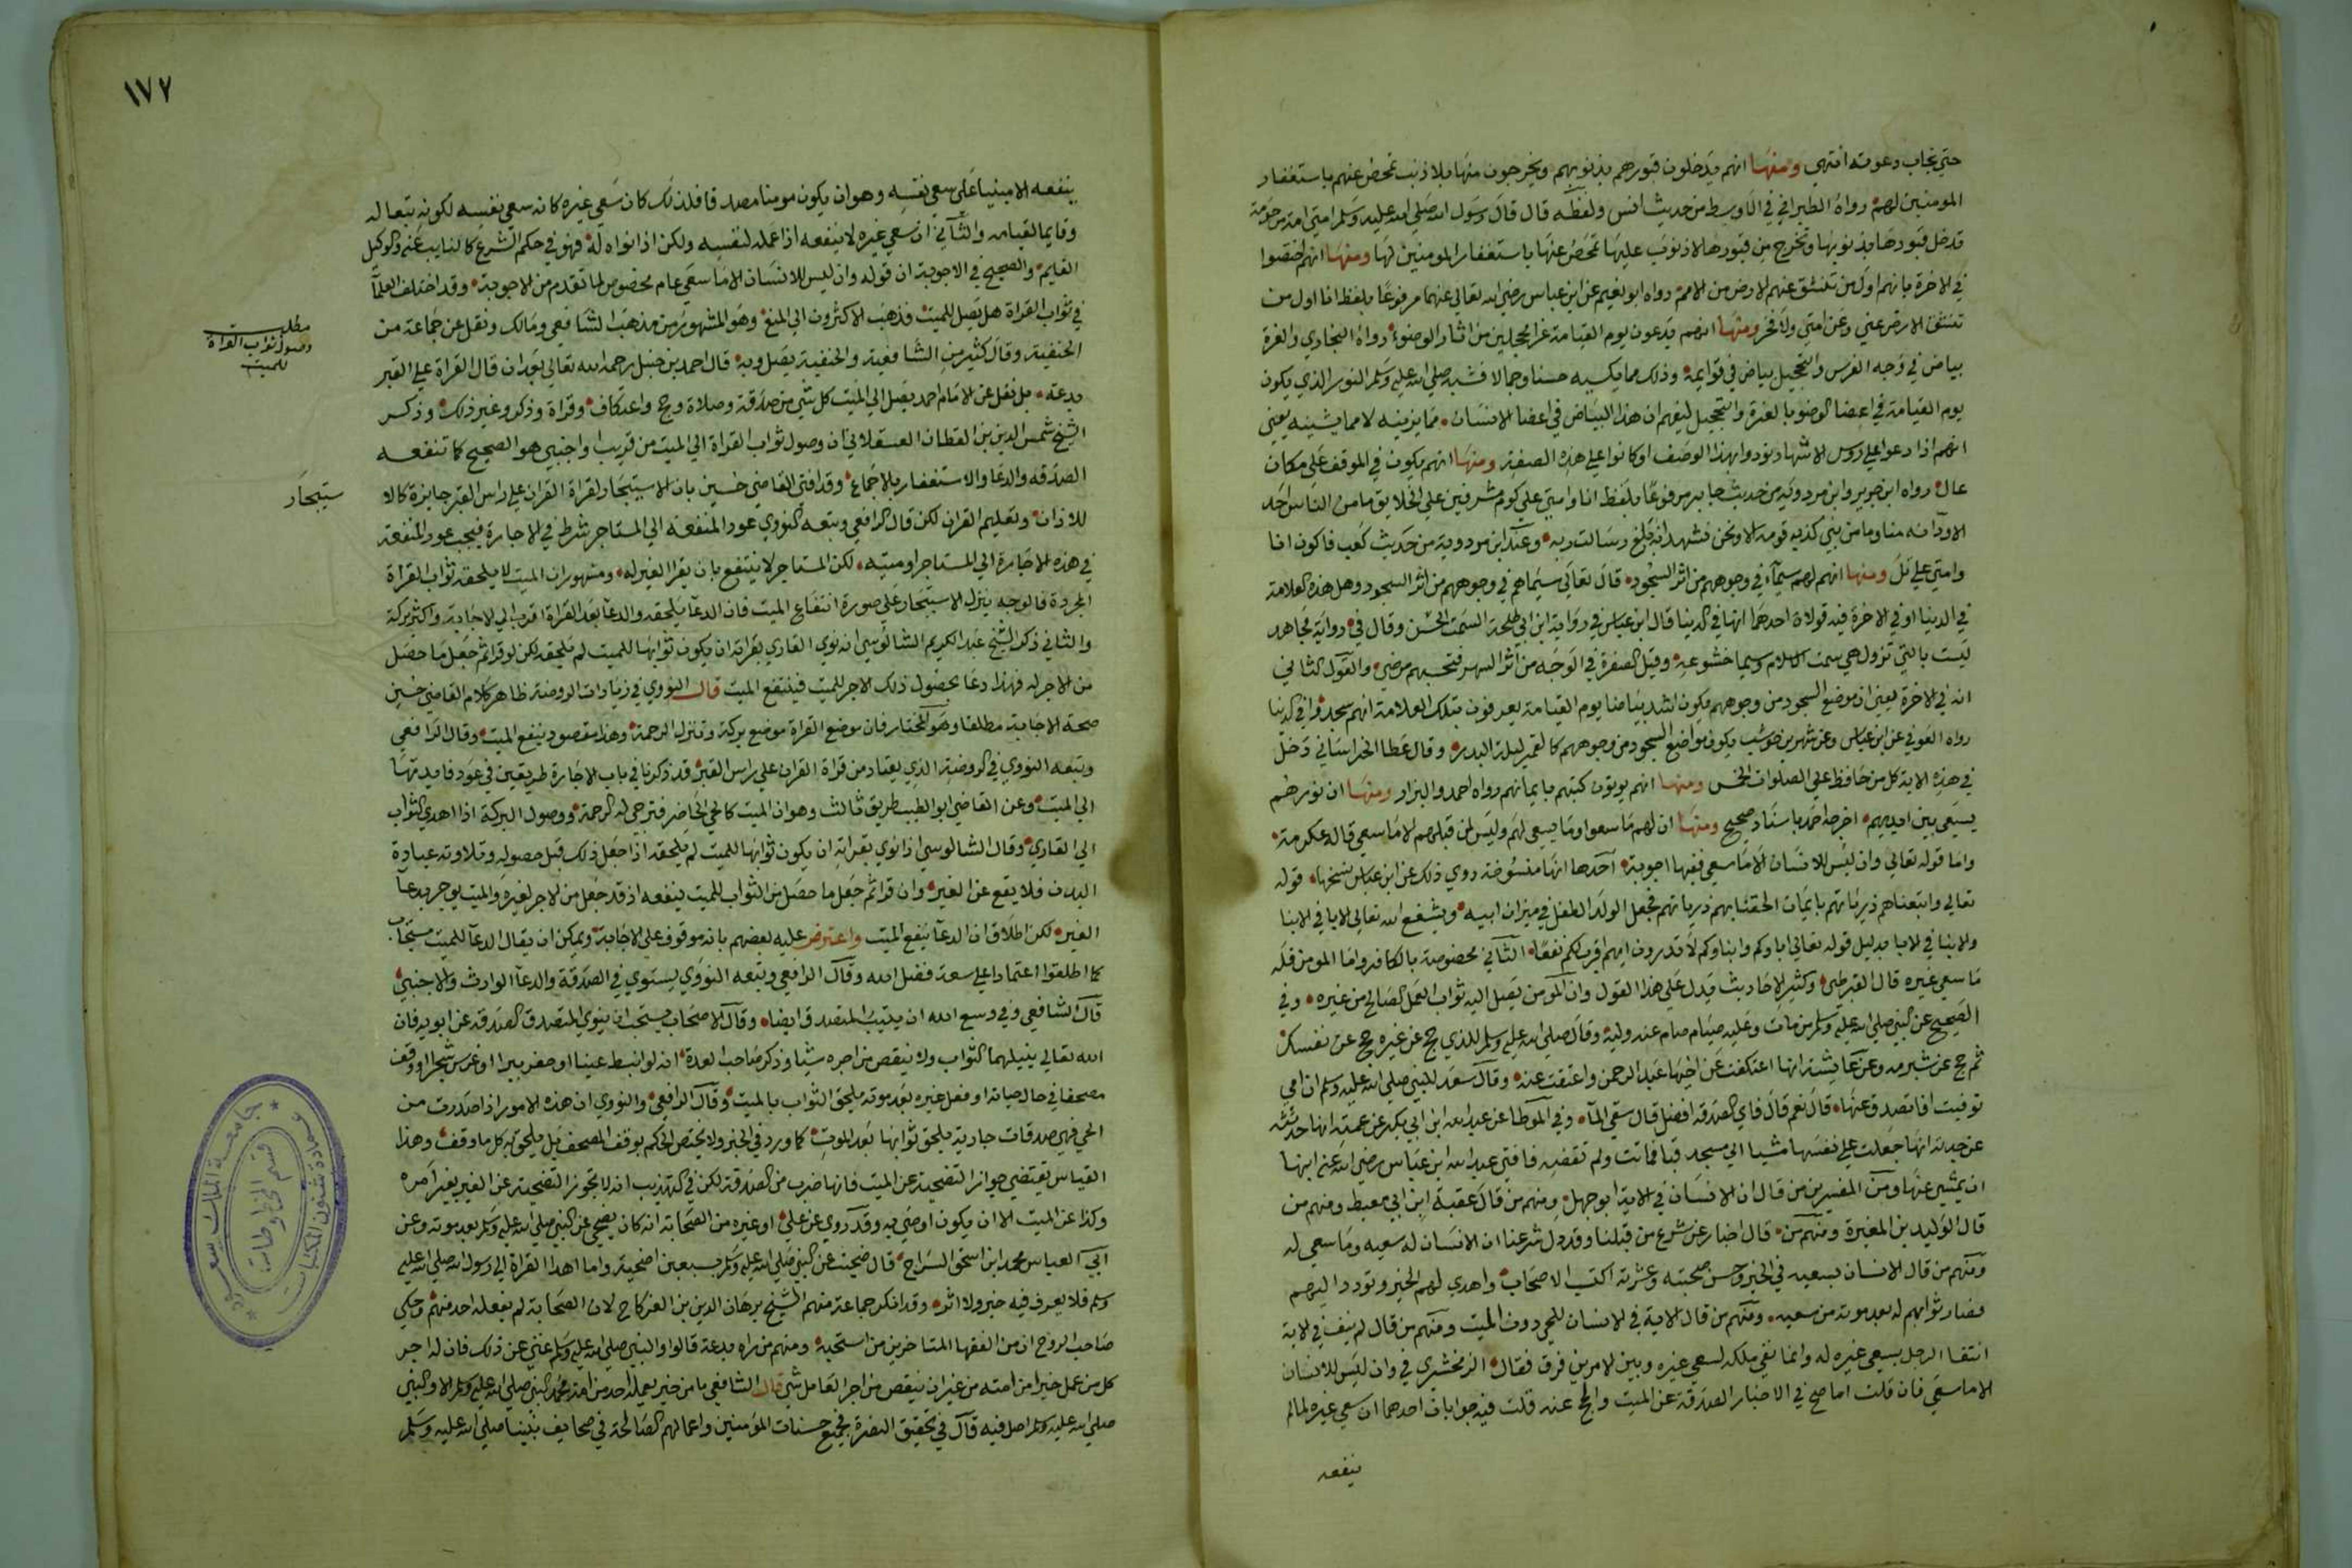 حتي يجاب دعوته انتهي ومنها انهم يدخلون قبورهم بذنوبهم ويخرجون منها بلا ذنب تمحض عنهم باستغفار
المومنين لهم رواه الطبراني في الاوسط من حديث انس ولفظه قال قال رسول الله صلي الله عليه وسلم امتي امة مرحومة
تدخل قبورها بذنوبها وتخرج من قبورها لا ذنوب عليها تمحض عنها باستغفار المومنين لها ومنها انهم اختصوا
في الاخرة بانهم اول من تنشق عنهم الارض من الامم رواه ابو نعيم عن ابن عباس رضي الله تعالي عنهما مرفوعا بلفظ انا اول من
تنشق الارض عني وعن امتي ولا فخر ومنها انهم يدعون يوم القيامة غرا محجلين من اثار الوضوء رواه البخاري والغرة
بياض في وجه الفرس والتحجيل بياض في قوايمه وذلك مما يكسبه حسنا وجمالا فشبه صلي الله عليه وسلم النور الذي يكون
يوم القيامة في اعضا الوضو بالغرة والتحجيل ليفهم ان هذا البياض في اعضا الانسان مما يزينه لا مما يشينه يعني
انهم اذا دعوا علي روس الاشهاد نودوا بهذا الوصف او كانوا علي هذه الصفة ومنها انهم يكون في الموقف علي مكان
عال رواه ابن جرير وابن مردويه من حديث جابر مرفوعا بلفظ انا وامتي علي كوم مشرفين علي الخلايق ما من الناس احد
الا ود انه منا وما من نبي كذبه قومه الا ونحن نشهد انه بلغ رسالت ربه وعند ابن مردوية من حديث كعب فاكون انا
وامتي علي تل ومنها انهم لهم سيماء في وجوههم من اثر السجود قال تعالي سيماهم في وجوههم من اثر السجود وهل هذه العلامة
في الدنيا او في الاخرة فيه قولان احدهما انها في الدنيا قال ابن عباس في رواية ابن ابي طلحة السمت الحسن وقال في رواية مجاهد
ليست بالتي ترون هي سمت الاسلام وسيما خشوعه وقيل الصفرة في الوجه من اثر السهر فتحسبهم مرضي والقول الثاني
انه في الاخرة يعني ان موضع السجود من وجوههم يكون اشد بياضا يوم القيامة يعرفون بتلك العلامة انهم سجدوا في الدنيا
رواه العوفي عن ابن عباس وعن شهر بن حوشب يكون مواضع السجود من وجوههم كالقمر ليلة البدر وقال عطا الخراساني دخل
في هذه الاية كل من حافظ علي الصلوات الخمس ومنها انهم يوتون كتبهم بايمانهم رواه احمد والبزار ومنها ان نورهم
يسعي بين ايديهم اخرجه احمد باسناد صحيح ومنها ان لهم ما سعوا وما يسعي لهم وليس لمن قبلهم الا ما سعي قاله عكرمة
واما قوله تعالي وان ليس للانسان الا ما سعي ففيها اجوبة احدها انها منسوخة روي ذلك عن ابن عباس نسخها قوله
تعالي واتبعناهم ذرياتهم بايمان الحقنا بهم ذرياتهم فجعل الولد الطفل في ميزان ابيه ويشفع الله تعالي الابا في الابنا
والابنا في الابا بدليل قوله تعالي اباوكم وابناوكم لا تدرون ايهم اقرب لكم نفعا الثاني مخصوصة بالكافر واما المومن فله
ما سعي غيره قال القرطبي وكثير الاحاديث يدل علي هذا القول وان المومن يصل اليه ثواب العمل الصالح من غيره وفي
الصحيح عن النبي صلي الله عليه وسلم من مات وعليه صيام صام عنه وليه وقال صلي الله عليه وسلم للذي حج عن غيره حج عن نفسك
ثم حج عن شبرمه وعن عايشة انها اعتكفت عن اخيها عبد الرحمن واعتقت عنه وقال سعد للنبي صلي الله عليه وسلم ان امي
توفيت افاتصدق عنها قال نعم قال فاي الصدقة افضل قال سقي الما وفي الموطا عن عبد الله ابن ابي بكر عن عمته انها حدثته
عن جدته انها جعلت علي نفسها مشيا الي مسجد قبا فماتت ولم تقضه فافتي عبد الله ابن عباس رضي الله عنه ابنها
ان يمشي عنها ومن المفسرين من قال ان الانسان في الاية ابو جهل ومنهم من قال عقبة ابن ابي معيط ومنهم من
قال الوليد بن المغيرة ومنهم من قال اخبار عن شرع من قبلنا وقد دل شرعنا ان الانسان له سعيه وما سعي له
ومنهم من قال الانسان بسعيه في الخير وحسن صحبته وعشرته اكتسب الاصحاب واهدي لهم الخير وتودد اليهم
فصار ثوابهم له بعد موته من سعيه ومنهم من قال الاية في الانسان للحي دون الميت ومنهم من قال لم ينف في الاية
انتفا الرجل بسعي غيره له وانما نفي ملكه لسعي غيره وبين الامرين فرق فقال الزمخشري في وان ليس للانسان
الا ما سعي فان قلت اما صح في الاخبار الصدقة عن الميت والحج عنه قلت فيه جوابان احدهما ان سعي غيره لما لم
ينفعه
١٧٢
ينفعه الا مبنيا علي سعي نفسه وهو ان يكون مومنا مصدقا فلذلك كان سعي غيره كانه سعي نفسه لكونه تبعا له
وقايما لقيامه والثاني ان سعي غيره لا ينفعه اذا عمله لنفسه ولكن اذا نواه له فهو في حكم الشرع كالنايب عنه والوكيل
القايم والصحيح في الاجوبة ان قوله وان ليس للانسان الا ما سعي عام مخصوص لما تقدم من الاجوبة وقد اختلف العلما
في ثواب القراة هل يصل للميت فذهب الاكثرون الي المنع وهو المشهور من مذهب الشافعي ومالك ونقل عن جماعة من
الحنفية وقال كثير من الشافعية والحنفية يصل وبه قال احمد بن حنبل رحمه الله تعالي بعد ان قال القراة علي القبر
بدعة بل نقل عن الامام احمد يصل الي الميت كل شي من صدقة وصلاة وحج واعتكاف وقراة وذكر وغير ذلك وذكر
الشيخ شمس الدين بن القطان العسقلاني ان وصول ثواب القراة الي الميت من قريب او اجنبي هو الصحيح كما تنفعه
الصدقه والدعا والاستغفار بالاجماع وقد افتي القاضي حسين بان الاستيجار لقراة القران علي راس القبر جايزة كالا
للاذان وتعليم القران لكن قال الرافعي وتبعه النووي عود المنفعة الي المستاجر شرط في الاجارة فيجب عود المنفعة
في هذه الاجارة الي المستاجر او ميته لكن المستاجر لا ينتفع بان يقرا الغير له ومشهور ان الميت لا يلحقه ثواب القراة
المجردة فالوجه تنزيل الاستيجار علي صورة انتفاع الميت فان الدعا يلحقه والدعا بعد القراة اقرب الي الاجابة واكثر بركة
والثاني ذكر الشيخ عبد الكريم الشالوسي انه نوي القاري بقراته ان يكون ثوابها للميت لم يلحقه لكن لو قرا ثم جعل ما حصل
من الاجر له فهذا دعا بحصول ذلك الاجر للميت فينتفع الميت قال النووي في زيادات الروضة ظاهر كلام القاضي حسين
صحة الاجابة مطلقا وهو المختار فان موضع القراة موضع بركة وتنزل الرحمة وهذا مقصود ينفع الميت وقال الرافعي
وتبعه النووي في الروضة الذي يعتاد من قراة القران علي راس القبر قد ذكرنا في باب الاجارة طريقين في عود فايدتها
الي الميت وعن القاضي ابو الطيب طريق ثالث وهو ان الميت كالحي الحاضر فترجي له الرحمة ووصول البركة اذا اهدي الثواب
الي القاري وقال الشالوسي اذا نوي بقراته ان يكون ثوابها للميت لم يلحقه اذا جعل ذلك قبل حصوله وتلاوته عبادة
البدن فلا يقع عن الغير وان قرا ثم جعل ما حصل من الثواب للميت ينفعه اذ قد جعل من الاجر لغيره والميت يوجر بدعا
الغير لكن اطلاق ان الدعا ينفع الميت واعترض عليه بعضهم بانه موقوف علي الاجابة ويمكن ان يقال الدعا للميت مستجاب
كما اطلقوا اعتمادا علي سعة فضل الله وقال الرافعي وتبعه النووي يستوي في الصدقة والدعا الوارث والاجنبي
قال الشافعي وفي وسع الله ان يثيب المتصدق ايضا وقال الاصحاب يستحب ان ينوي المتصدق الصدقة عن ابويه فان
الله تعالي ينيلهما الثواب ولا ينقص من اجره شيا وذكر صاحب العدة انه لو انبط عينا او حفر بيرا او غرس شجرا او وقف
مصحفا في حال حياته او فعل غيره بعد موته يلحق الثواب بالميت وقال الرافعي والنووي ان هذه الامور اذا صدرت من
الحي فهي صدقات جارية يلحق ثوابها بعد الموت كما ورد في الخبر ولا يختص الحكم بوقف المصحف بل يلحق به كل ما وقف وهذا
القياس يقتضي جواز التضحية عن الميت فانها ضرب من الصدقة لكن في التهذيب انه لا تجوز التضحية عن الغير بغير امره
وكذا عن الميت الا ان يكون اوصي به وقد روي عن علي او غيره من الصحابة انه كان يضحي عن النبي صلي الله عليه وسلم بعد موته وعن
ابي العباس محمد ابن اسحق السراج قال ضحيت عن النبي صلي الله عليه وسلم بسبعين اضحية واما اهدا القراة الي رسول الله صلي الله عليه
وسلم فلا يعرف فيه خبر ولا اثر وقد انكر جماعة منهم الشيخ برهان الدين بن الفركاح لان الصحابة لم يفعله احد منهم وحكي
صاحب الروح ان من الفقها المتاخرين من استحبه ومنهم من راه بدعة قالوا والنبي صلي الله عليه وسلم غني عن ذلك فان له اجر
كل من عمل خيرا من امته من غير ان ينقص من اجر العامل شي قال الشافعي ما من خير يعمله احد من امة محمد النبي صلي الله عليه وسلم الا والنبي
صلي الله عليه وسلم اصل فيه قال في تحقيق النصرة فجميع حسنات المؤمنين واعمالهم الصالحة في صحايف نبينا صلي الله عليه وسلم
مطلب
وصول ثواب القراة
للميت
ستيجار
جامعة الملك سعود
عمادة شئون المكتبات
قسم المخطوطات